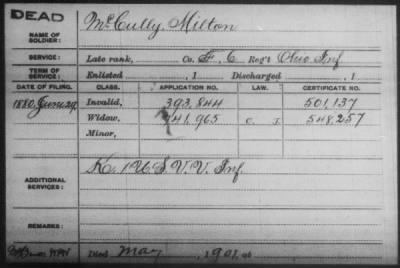 DEAD
NAME OF SOLDIER: McCully, Milton
SERVICE: Late rank, Co. F, 6 Reg't Ohio Inf
TERM OF SERVICE: Enlisted , 1 Discharged , 1
DATE OF FILING. CLASS. APPLICATION NO. LAW. CERTIFICATE NO.
1880, June 29 Invalid, 393,844 501,137
Widow, 741,965 C. I. 548,257
Minor,
ADDITIONAL SERVICES: K. 1 U.S.V.V. Inf.
REMARKS:
Died May , 1901, at